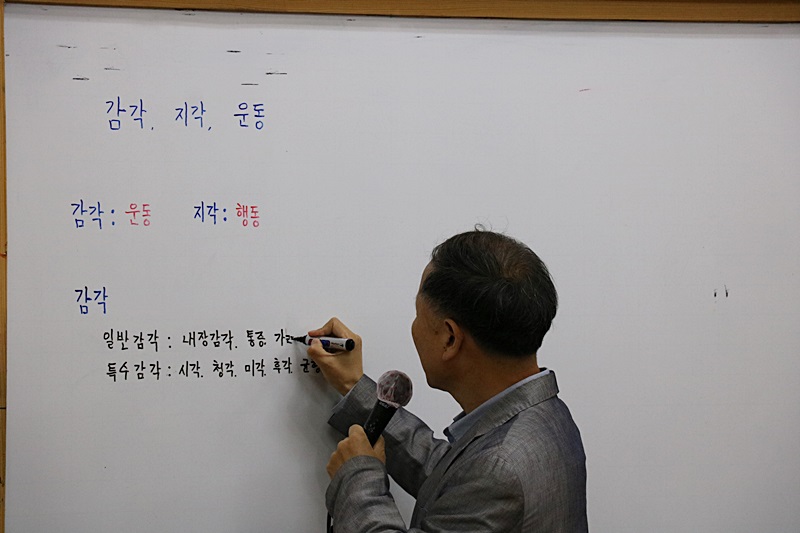 감각, 지각, 운동
감각 : 운동 지각 : 행동
감각
일반감각 : 내장감각, 통증
특수감각 : 시각, 청각, 미각, 후각